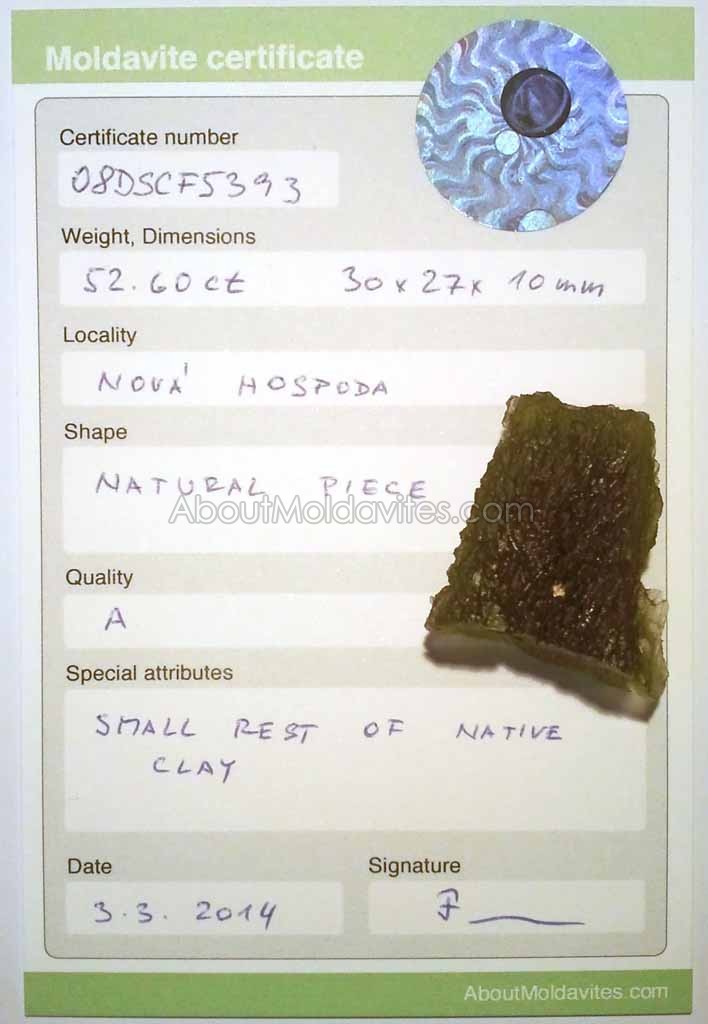 Moldavite certificate
Certificate number
08DSCF5393
Weight, Dimensions
52.60ct 30 x 27 x 10 mm
Locality
NOVÁ HOSPODA
Shape
NATURAL PIECE
AboutMoldavites.com
Quality
A
Special attributes
SMALL REST OF NATIVE
CLAY
Date Signature
3.3. 2014
AboutMoldavites.com